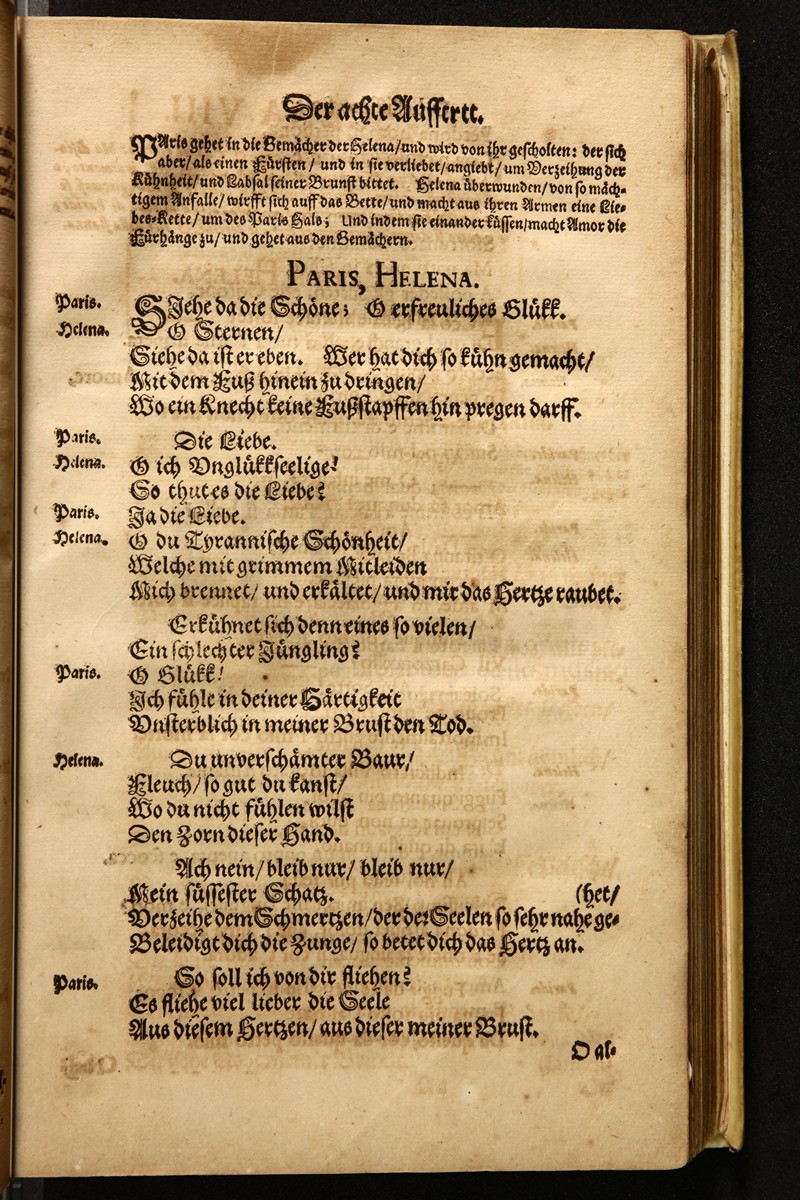 Der achte Auffertt.
PAris gehet in die Gemächer der Helena/und wird von ihr gescholten: der sich
aber/ als einen Fürsten / und in sie verliebet/angiebt/ um Verzeihung der
Kühnheit/ und Labsal seiner Brunst bittet. Helena überwunden/von so mäch-
tigem Anfalle/ wirfft sich auff das Bette/und macht aus ihren Armen eine Lie-
bes-Kette/ um des Paris Hals; Und indem sie einander küssen/macht Amor die
Fürhänge zu/ und gehet aus den Gemächern.
PARIS, HELENA.
Paris. SJehe da die Schöne; O erfreuliches Glükk.
Helena. O Sternen/
Siehe da ist er eben. Wer hat dich so kühn gemacht/
Mit dem Fuß hinein zu dringen/
Wo ein Knecht keine Fußstapffen hin pregen darff.
Paris. Die Liebe.
Helena. O ich Vnglükkseelige!
So thut es die Liebe?
Paris. Ja die Liebe.
Helena. O du Tyrannische Schönheit/
Welche mit grimmem Mitleiden
Mich brennet/ und erkältet/ und mir das Hertze raubet.
Erkühnet sich denn eines so vielen/
Ein schlechter Jüngling?
Paris. O Glükk!
Jch fühle in deiner Härtigkeit
Vnsterblich in meiner Brust den Tod.
Helena. Du unverschämter Baur/
Fleuch/ so gut du kanst/
Wo du nicht fühlen wilst
Den Zorn dieser Hand.
Ach nein/ bleib nur/ bleib nur/
Mein süssester Schatz. (het/
Verzeihe dem Schmertzen/der der Seelen so sehr nahe ge-
Beleidigt dich die Zunge/ so betet dich das Hertz an.
Paris. So soll ich von dir fliehen?
Es fliehe viel lieber die Seele
Aus diesem Hertzen/ aus dieser meiner Brust.
Das-